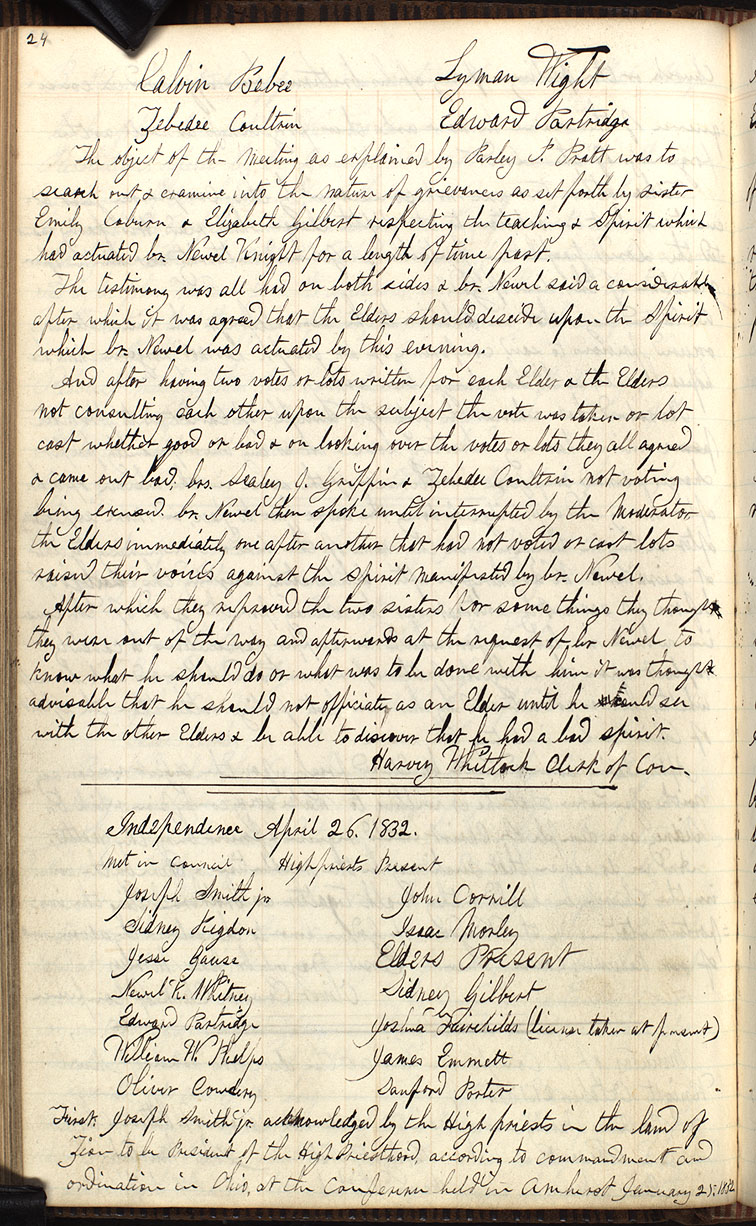 24
Calvin Bebee Lyman Wight
Zebedee Coultrin Edward Partridge
The object of the meeting as explained by Parley P. Pratt was to
search out & examine into the nature of grievences as set forth by sister
Emily Coburn & Elizabeth Gilbert respecting the teaching & Spirit which
had actuated br. Newel Knight for a length of time past.
The testimony was all had on both sides & br. Newel said a considerable
after which it was agreed that the Elders should descide upon the Spirit
which br. Newel was actuated by this evening.
And after having two votes or lots written for each Elder & the Elders
not consulting each other upon the subject the vote was taken or lot
cast whether good or bad & on looking over the votes or lots they all agreed
& came out bad, brs. Sealey J. Griffin & Zebedee Coultrin not voting
being excused. br. Newel then spoke until interrupted by the Moderator
the Elders immediately one after another that had not voted or cast lots
raised their voices against the spirit manifested by br. Newel.
After which they reproved the two sisters for some things they thought
they were out of the way and afterwards at the request of br Newel, to
know what he should do or what was to be done with him it was thought
advisable that he should not officiate as an Elder until he should see
with the other Elders & be able to discover that he had a bad spirit.
Harvey Whitlock Clerk of Con.
Independence April 26. 1832.
Met in Council High priests Present
Joseph Smith jr John Corrill
Sidney Rigdon Isaac Morley
Jesse Gause Elders Present
Newel K. Whitney Sidney Gilbert
Edward Partridge Joshua Fairchilds (license taken at present)
William W. Phelps James Emmett
Oliver Cowdery Sanford Porter
First. Joseph Smith jr. acknowledged by the High priests in the land of
Zion to be President of the High Priesthood, according to commandment and
ordination in Ohio, at the Conference held in Amherst January 25. 1832